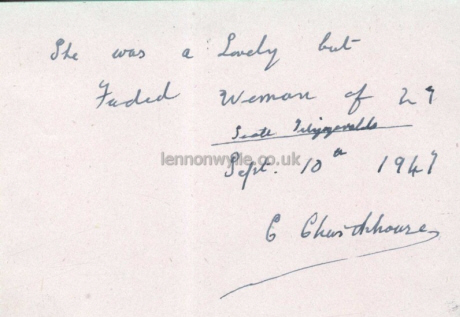 She was a Lovely but
Faded Woman of 27
Scott Fitzgeralds
lennonwylie.co.uk
Sept. 10th 1947
C